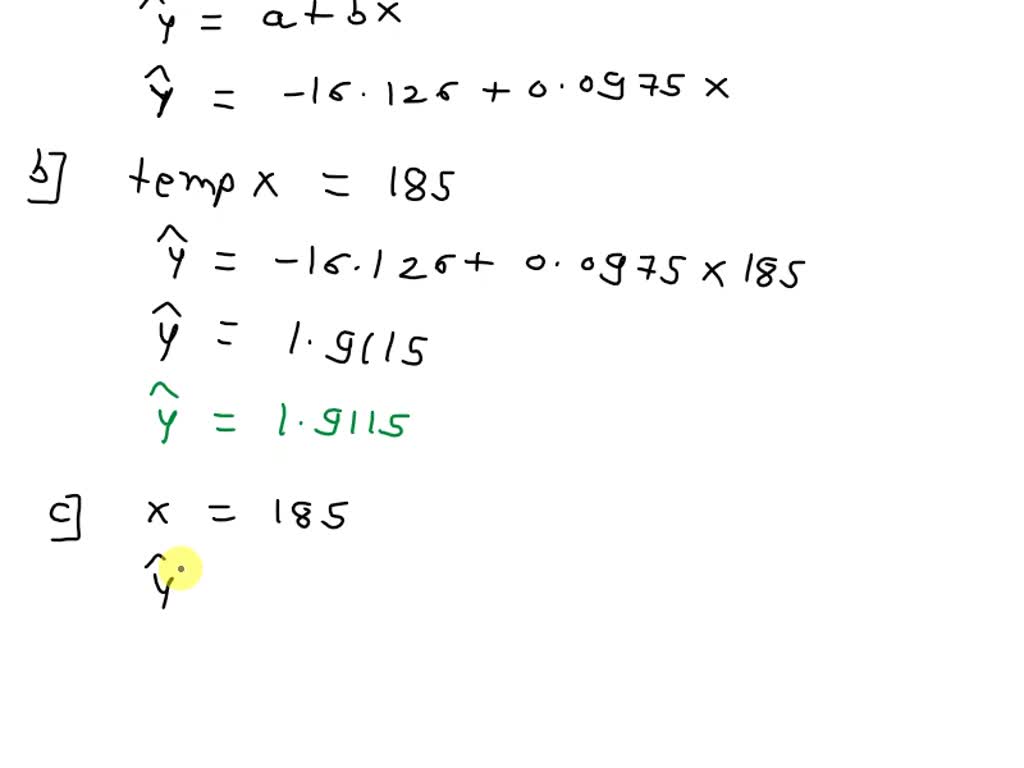 ŷ = a + bx
ŷ = -16.126 + 0.0975 x
b] temp x = 185
ŷ = -16.126 + 0.0975 x 185
ŷ = 1.9115
ŷ = 1.9115
c] x = 185
ŷ